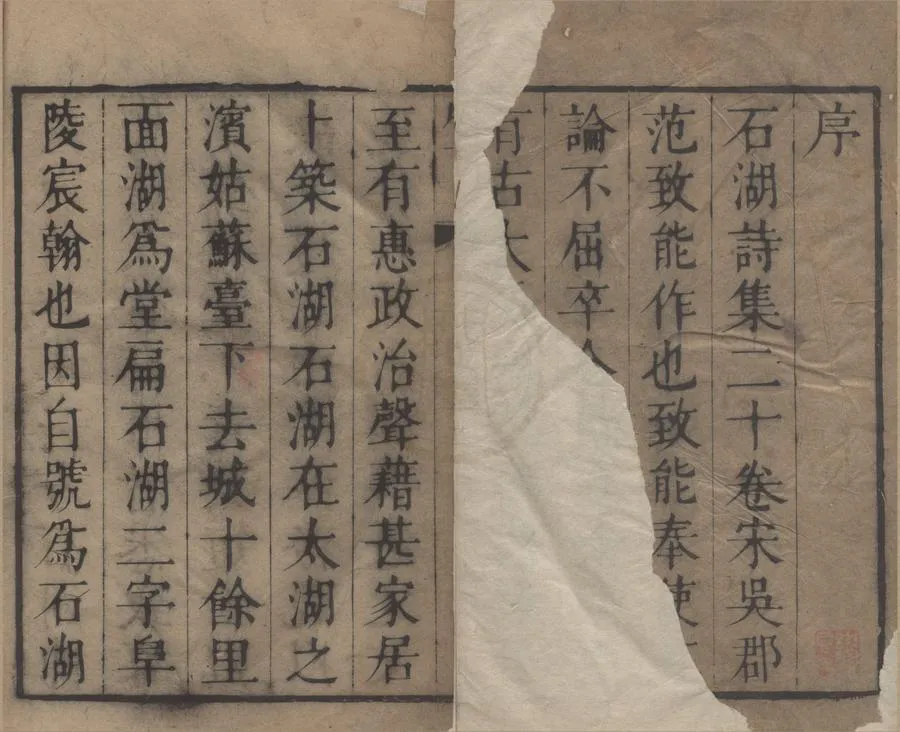 序
石湖詩集二十卷宋吳郡
范致能作也致能奉使
論不屈卒
有古大
至有惠政治聲藉甚家居
卜築石湖石湖在太湖之
濱姑蘇臺下去城十餘里
面湖爲堂扁石湖二字阜
陵宸翰也因自號爲石湖